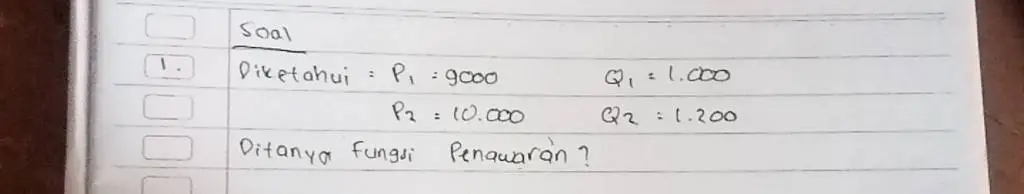 Soal
1. Diketahui : P₁ : 9000 Q₁ : 1.000
P₂ : 10.000 Q₂ : 1.200
Ditanya Fungsi Penawaran ?